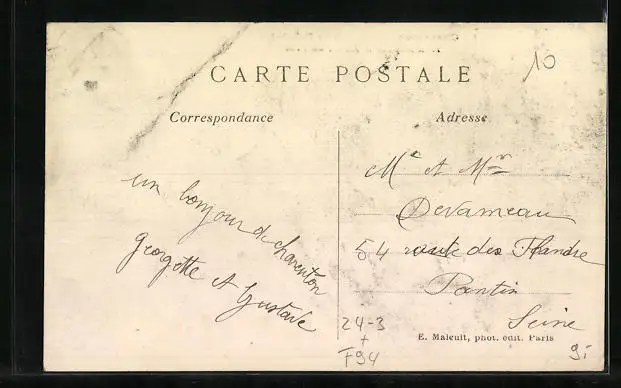 10
CARTE POSTALE
Correspondance
Adresse
un bonjour de charenton
Georgette et Gustave
Me et Mr
Devameau
54 route des Flandre
Pantin
Seine
24-3
+
F94
E. Maleuit, phot. édit. Paris